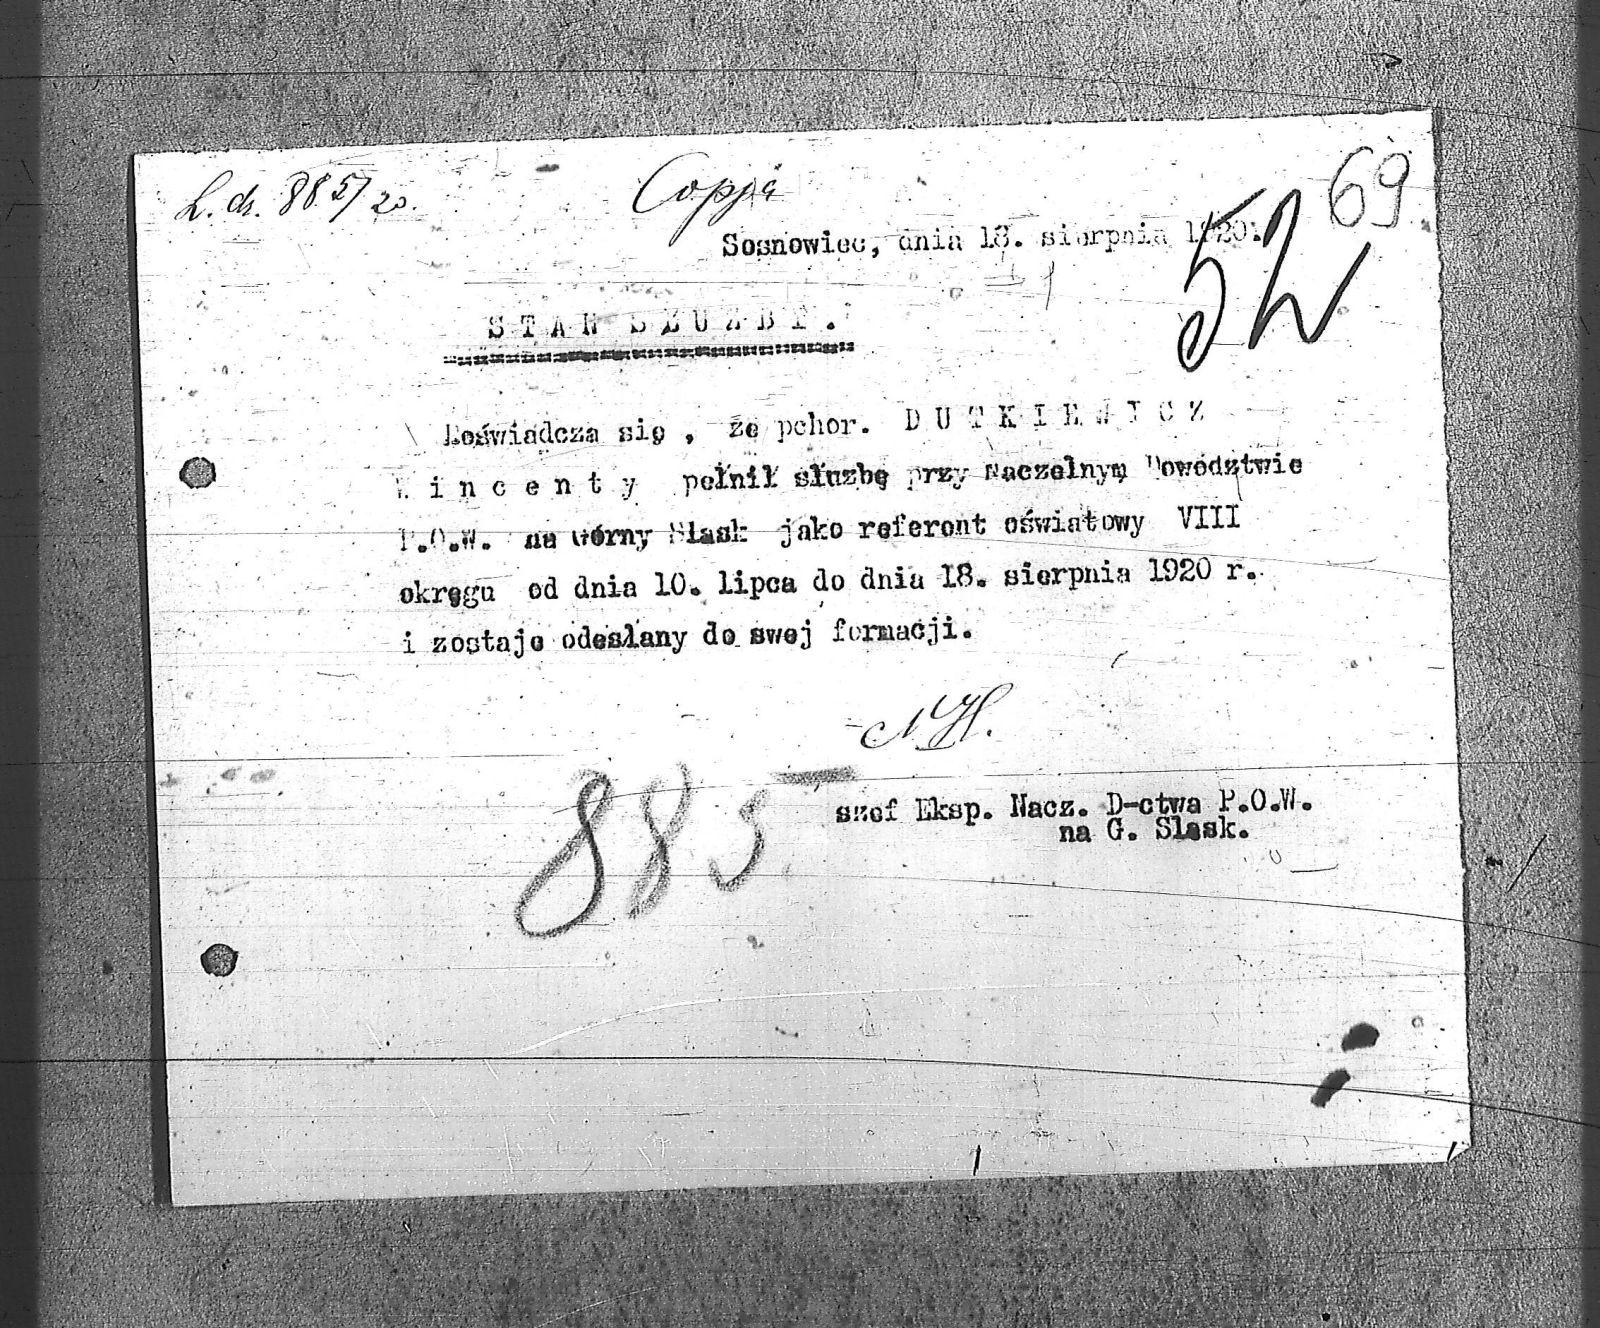 L. dz. 885/20.
Copja
69
52
Sosnowiec, dnia 18. sierpnia 1920.
STAN SŁUŻBY.
Poświadcza się, że pchor. DUTKIEWICZ
Wincenty pełnił służbę przy Naczelnym Dowództwie
P.O.W. na Górny Sląsk jako referent oświatowy VIII
okręgu od dnia 10. lipca do dnia 18. sierpnia 1920 r.
i zostaje odesłany do swej formacji.
885
szef Eksp. Nacz. D-ctwa P.O.W.
na G. Sląsk.